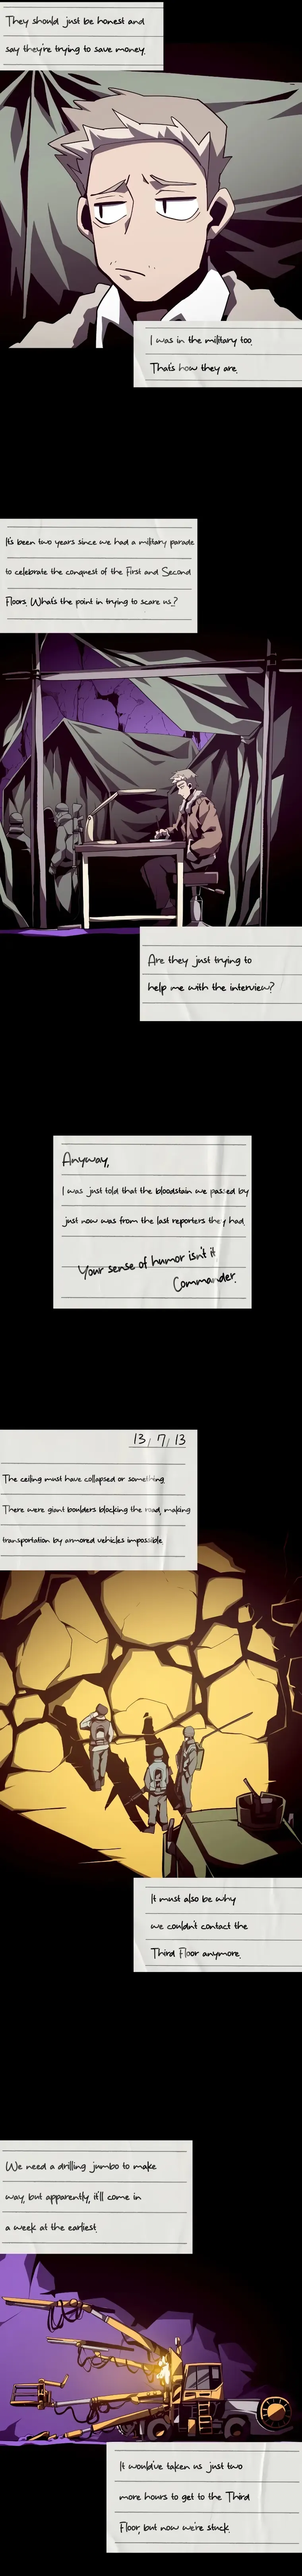 They should just be honest and
say they're trying to save money.
I was in the military too.
That's how they are.
It's been two years since we had a military parade
to celebrate the conquest of the First and Second
Floors. What's the point in trying to scare us?
Are they just trying to
help me with the interview?
Anyway,
I was just told that the bloodstain we passed by
just now was from the last reporters they had.
Your sense of humor isn't it
Commander.
13/7/13
The ceiling must have collapsed or something.
There were giant boulders blocking the road, making
transportation by armored vehicles impossible.
It must also be why
we couldn't contact the
Third Floor anymore.
We need a drilling jumbo to make
way, but apparently, it'll come in
a week at the earliest.
It would've taken us just two
more hours to get to the Third
Floor, but now we're stuck.